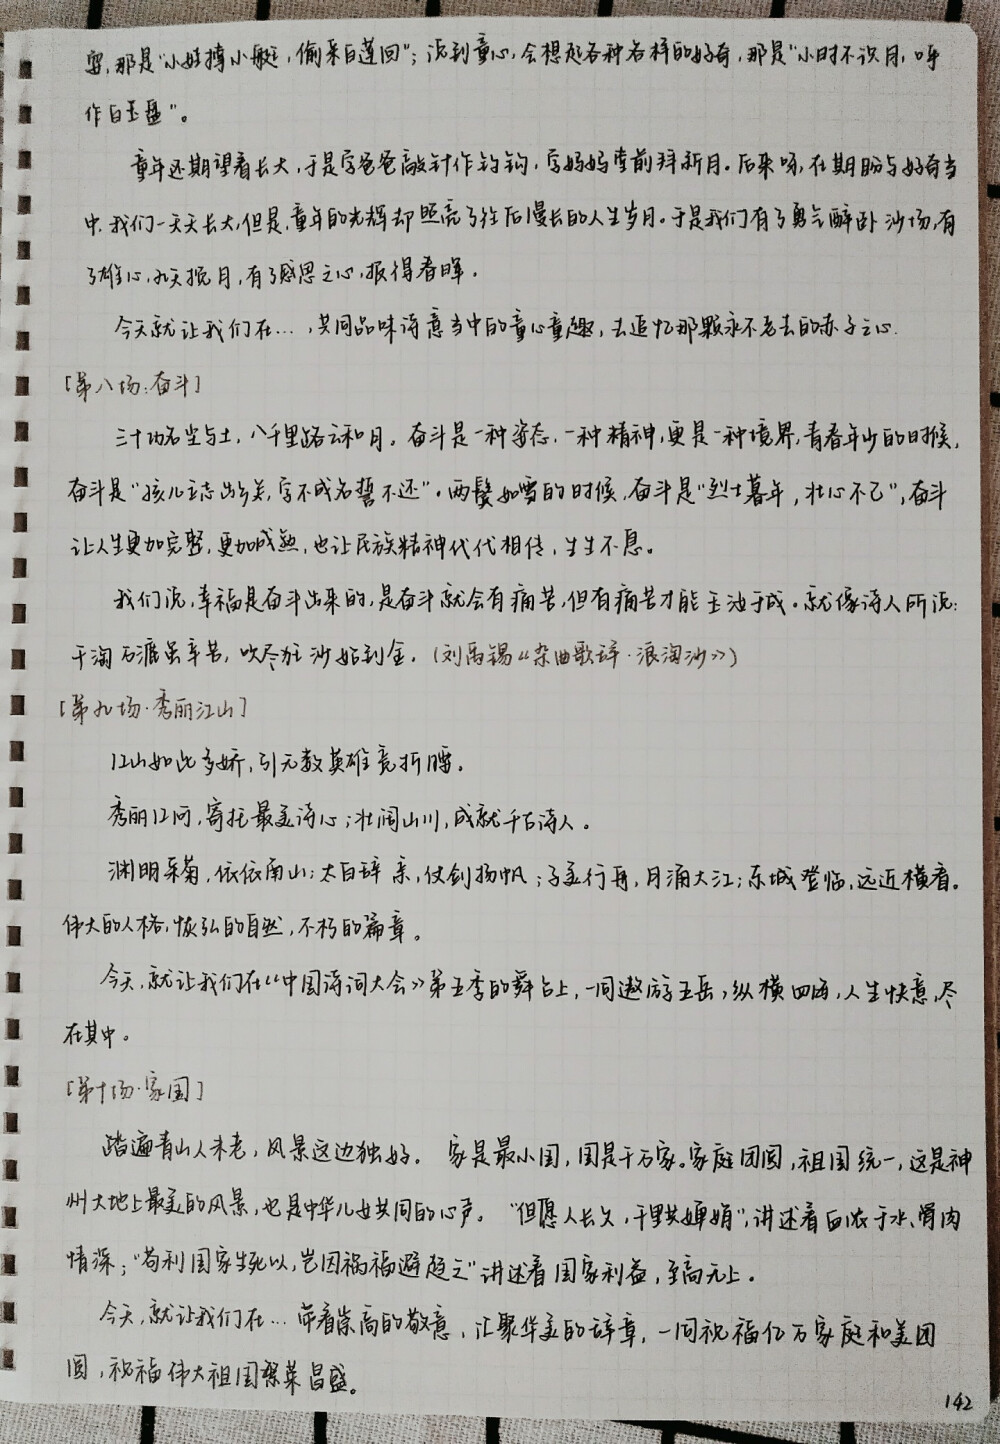 耍,那是“小娃撑小艇,偷采白莲回”;说到童心,会想起各种各样的好奇,那是“小时不识月,呼
作白玉盘”。
童年还期望着长大,于是学爸爸敲针作钓钩,学妈妈堂前拜新月。后来呀,在期盼与好奇当
中,我们一天天长大,但是,童年的光辉却照亮了往后漫长的人生岁月。于是我们有了勇气醉卧沙场,有
了雄心,九天揽月,有了感恩之心,报得春晖。
今天就让我们在…,共同品味诗意当中的童心童趣,去追忆那颗永不老去的赤子之心.
[第八场:奋斗]
三十功名尘与土,八千里路云和月。奋斗是一种姿态,一种精神,更是一种境界,青春年少的时候,
奋斗是“孩儿立志出乡关,学不成名誓不还”。两鬓如雪的时候,奋斗是“烈士暮年,壮心不已”,奋斗
让人生更加完整,更加成熟,也让民族精神代代相传,生生不息。
我们说,幸福是奋斗出来的,是奋斗就会有痛苦,但有痛苦才能玉汝于成。就像诗人所说:
千淘万漉虽辛苦,吹尽狂沙始到金。(刘禹锡《杂曲歌辞·浪淘沙》)
[第九场·秀丽江山]
江山如此多娇,引无数英雄竞折腰。
秀丽江河,寄托最美诗心;壮阔山川,成就千古诗人。
渊明采菊,依依南山;太白辞亲,仗剑扬帆;子美行舟,月涌大江;东坡登临,远近横看。
伟大的人格,恢弘的自然,不朽的篇章。
今天,就让我们在《中国诗词大会》第五季的舞台上,一同遨游五岳,纵横四海,人生快意,尽
在其中。
[第十场·家国]
踏遍青山人未老,风景这边独好。 家是最小国,国是千万家。家庭团圆,祖国统一,这是神
州大地上最美的风景,也是中华儿女共同的心声。“但愿人长久,千里共婵娟”,讲述着血浓于水、骨肉
情深;“苟利国家生死以,岂因祸福避趋之”讲述着国家利益,至高无上。
今天,就让我们在…带着崇高的敬意,汇聚华美的辞章,一同祝福亿万家庭和美团
圆,祝福伟大祖国繁荣昌盛。
142